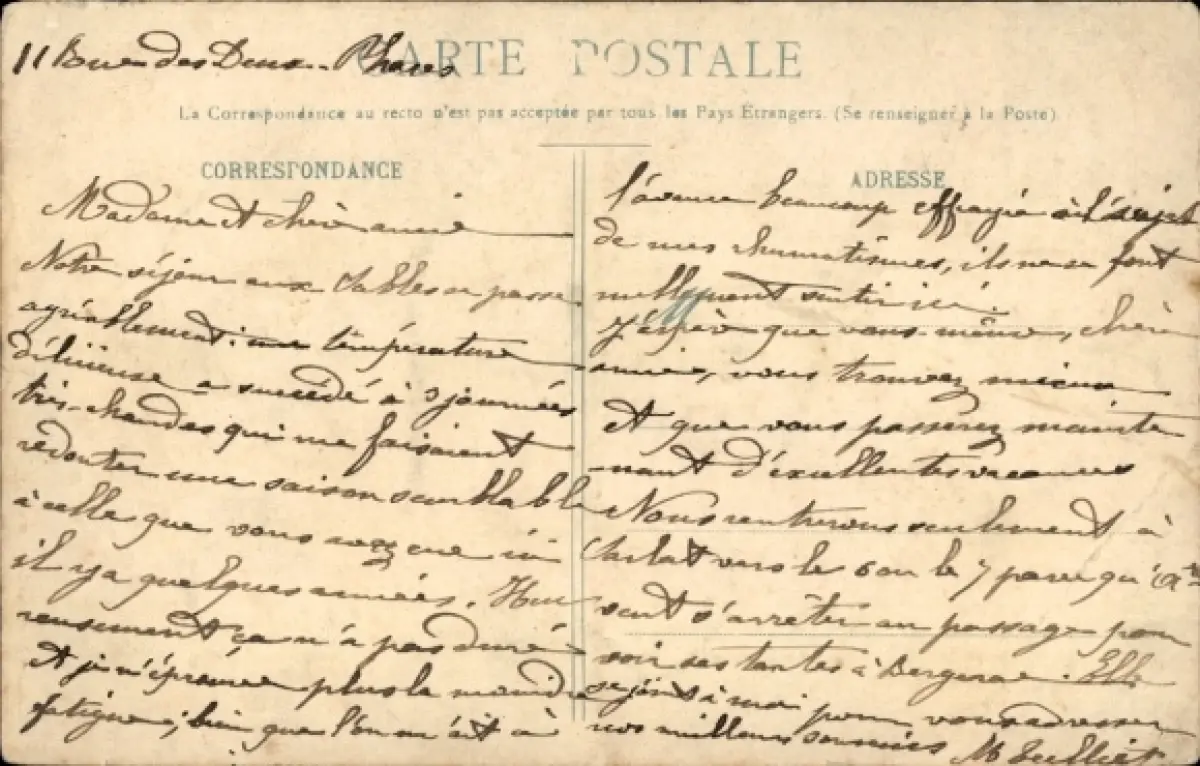 11 Rue des Deux-Phares
CARTE POSTALE
La Correspondance au recto n'est pas acceptée par tous les Pays Étrangers. (Se renseigner à la Poste)
CORRESPONDANCE
Madame et chère amie
Notre séjour aux Sables se passe
agréablement : une température
délicieuse a succédé à 3 journées
très-chaudes qui me faisaient
redouter une saison semblable
à celle que vous avez eue ici
il y a quelques années. Heu
reusement ça n'a pas duré
et je n'éprouve plus la moindre
fatigue ; bien que l'on m'ait à
ADRESSE
l'avance beaucoup effrayée à l'sujet
de mes rhumatismes, ils ne se font
nullement sentir ici
J'espère que vous-même, chère
amie, vous trouvez mieux
et que vous passerez mainte
nant d'excellentes vacances
Nous rentrerons seulement à
Sarlat vers le 6 ou le 7 parce qu'
veut s'arrêter au passage pour
voir ses tantes à Bergerac. Elle
se joint à moi pour vous adresser
nos meilleurs souvenirs